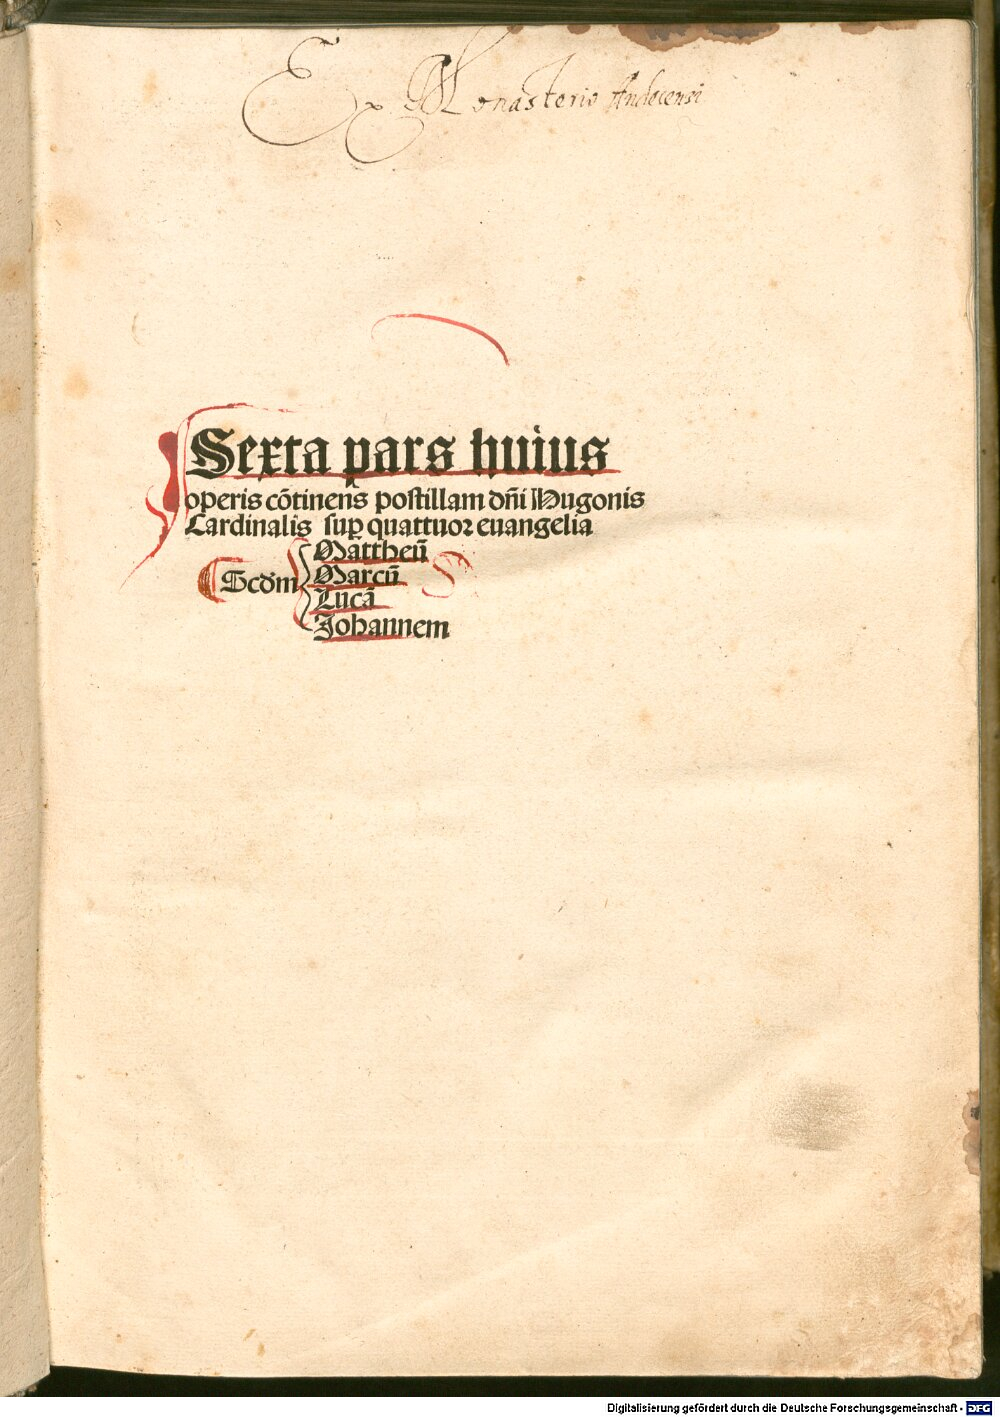 Ex Monasterio Andecensi
Sexta pars huius
operis cõtinens postillam dñi Hugonis
Cardinalis sup quattuor euangelia
Scdm
Mattheũ
Marcũ
Lucã
Johannem
Digitalisierung gefördert durch die Deutsche Forschungsgemeinschaft - DFG